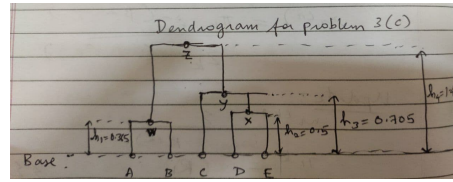 Dendrogram for problem 3(c)
Z
y
x
W
h₁=0.305
h₂=0.5
h₃=0.705
Base
A B C D E